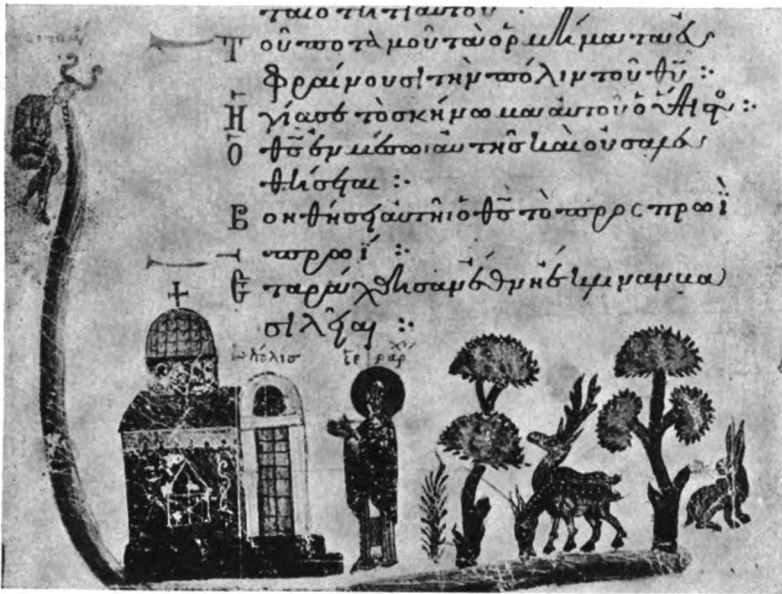 ταιότητι αὐτοῦ ·
Τοῦ ποταμοῦ τὰ ὁρμήματα εὐ
φραίνουσι τὴν πόλιν τοῦ θῦ :·
Ἡγίασε τὸ σκήνωμα αὐτοῦ ὁ :·
Ὁ θς ἐν μέσωι αὐτῆς καὶ οὐ σαλευ
θήσεται :·
Βοηθήσει αὐτῆι ὁ θς τὸ πρὸς πρωῒ
πρωΐ :·
Ἐταράχθησαν ἔθνη ἔκλιναν βα
σιλεῖαι :·
πόλις